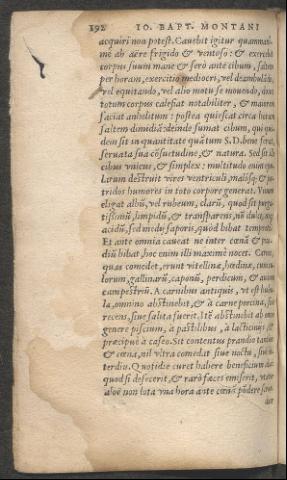 192 IO. BAPT. MONTANI
acquiri non potest. Cauebit igitur quammaxi-
mè ab aëre frigido & ventoso: & exercebit
corpus suum mane & serò ante cibum, saltem
per horam, exercitio mediocri, vel deambulãdo,
vel equitando, vel alio motu se mouendo, donec
totum corpus calefiat notabiliter, & maiorem
faciat anhelitum: postea quiescat circa horam
saltem dimidiã: deinde sumat cibum, qui qui-
dem sit in quantitate quãtum S. D. bene ferat,
seruata sua cõsuetudine, & natura. Sed sit ci-
cibus vnicus, & simplex: multitudo enim epu-
larum destruit vires ventriculi, malisq; & pu-
tridos humores in toto corpore generat. Vinum
eligat albũ, vel rubeum, clarũ, quod sit purga-
tissimũ, limpidũ, & transparens, nũ dulce,
acidũ, sed medij saporis, quòd bibat temperatè.
Et ante omnia caueat ne inter cœnã & prã-
diũ bibat, hoc enim illi maximè nocet. Carnes
quas comedet, erunt vitellinæ, hedinæ,
lorum, gallinarũ, caponũ, perdicum, & auium
campestriũ. A carnibus antiquis, vt est bubu-
la, omnino abstinebit, & à carne porcina, siue
recens, siue salita fuerit. Itẽ abstinebit ab omni
genere piscium, à pastilibus, à lacticinijs &
præcipuè à caseo. Sit contentus prandio tantùm
& cœna, nil vltra comedat siue noctu, siue in-
terdiu. Quotidie curet habere beneficium
quod si defecerit, & rarò fæces emiserit, vtatur
aloë non lota vna hora ante cœnã põdere scru-